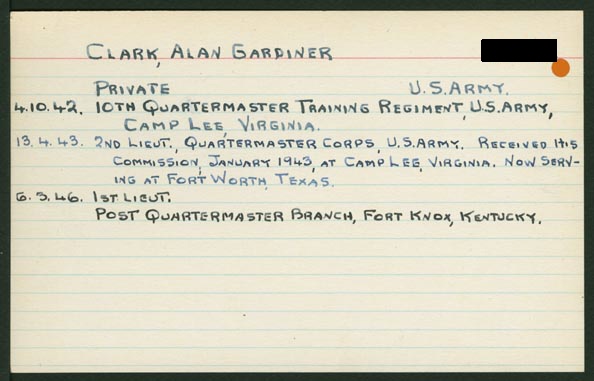 CLARK, ALAN GARDINER
PRIVATE U.S. ARMY.
4.10.42. 10TH QUARTERMASTER TRAINING REGIMENT, U.S. ARMY,
CAMP LEE, VIRGINIA.
13.4.43. 2ND LIEUT., QUARTERMASTER CORPS, U.S. ARMY. RECEIVED HIS
COMMISSION, JANUARY 1943, AT CAMP LEE, VIRGINIA. NOW SERV-
ING AT FORT WORTH, TEXAS.
6.3.46. 1ST LIEUT.
POST QUARTERMASTER BRANCH, FORT KNOX, KENTUCKY.